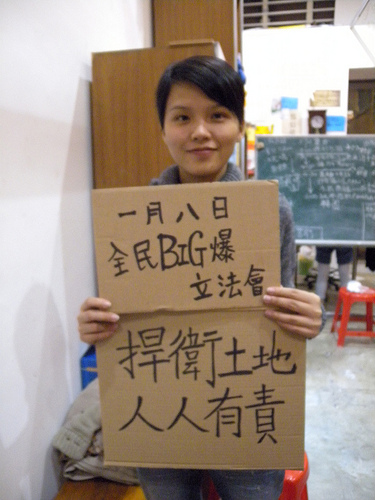 一月八日
全民BIG爆
立法會
捍衛土地
人人有責